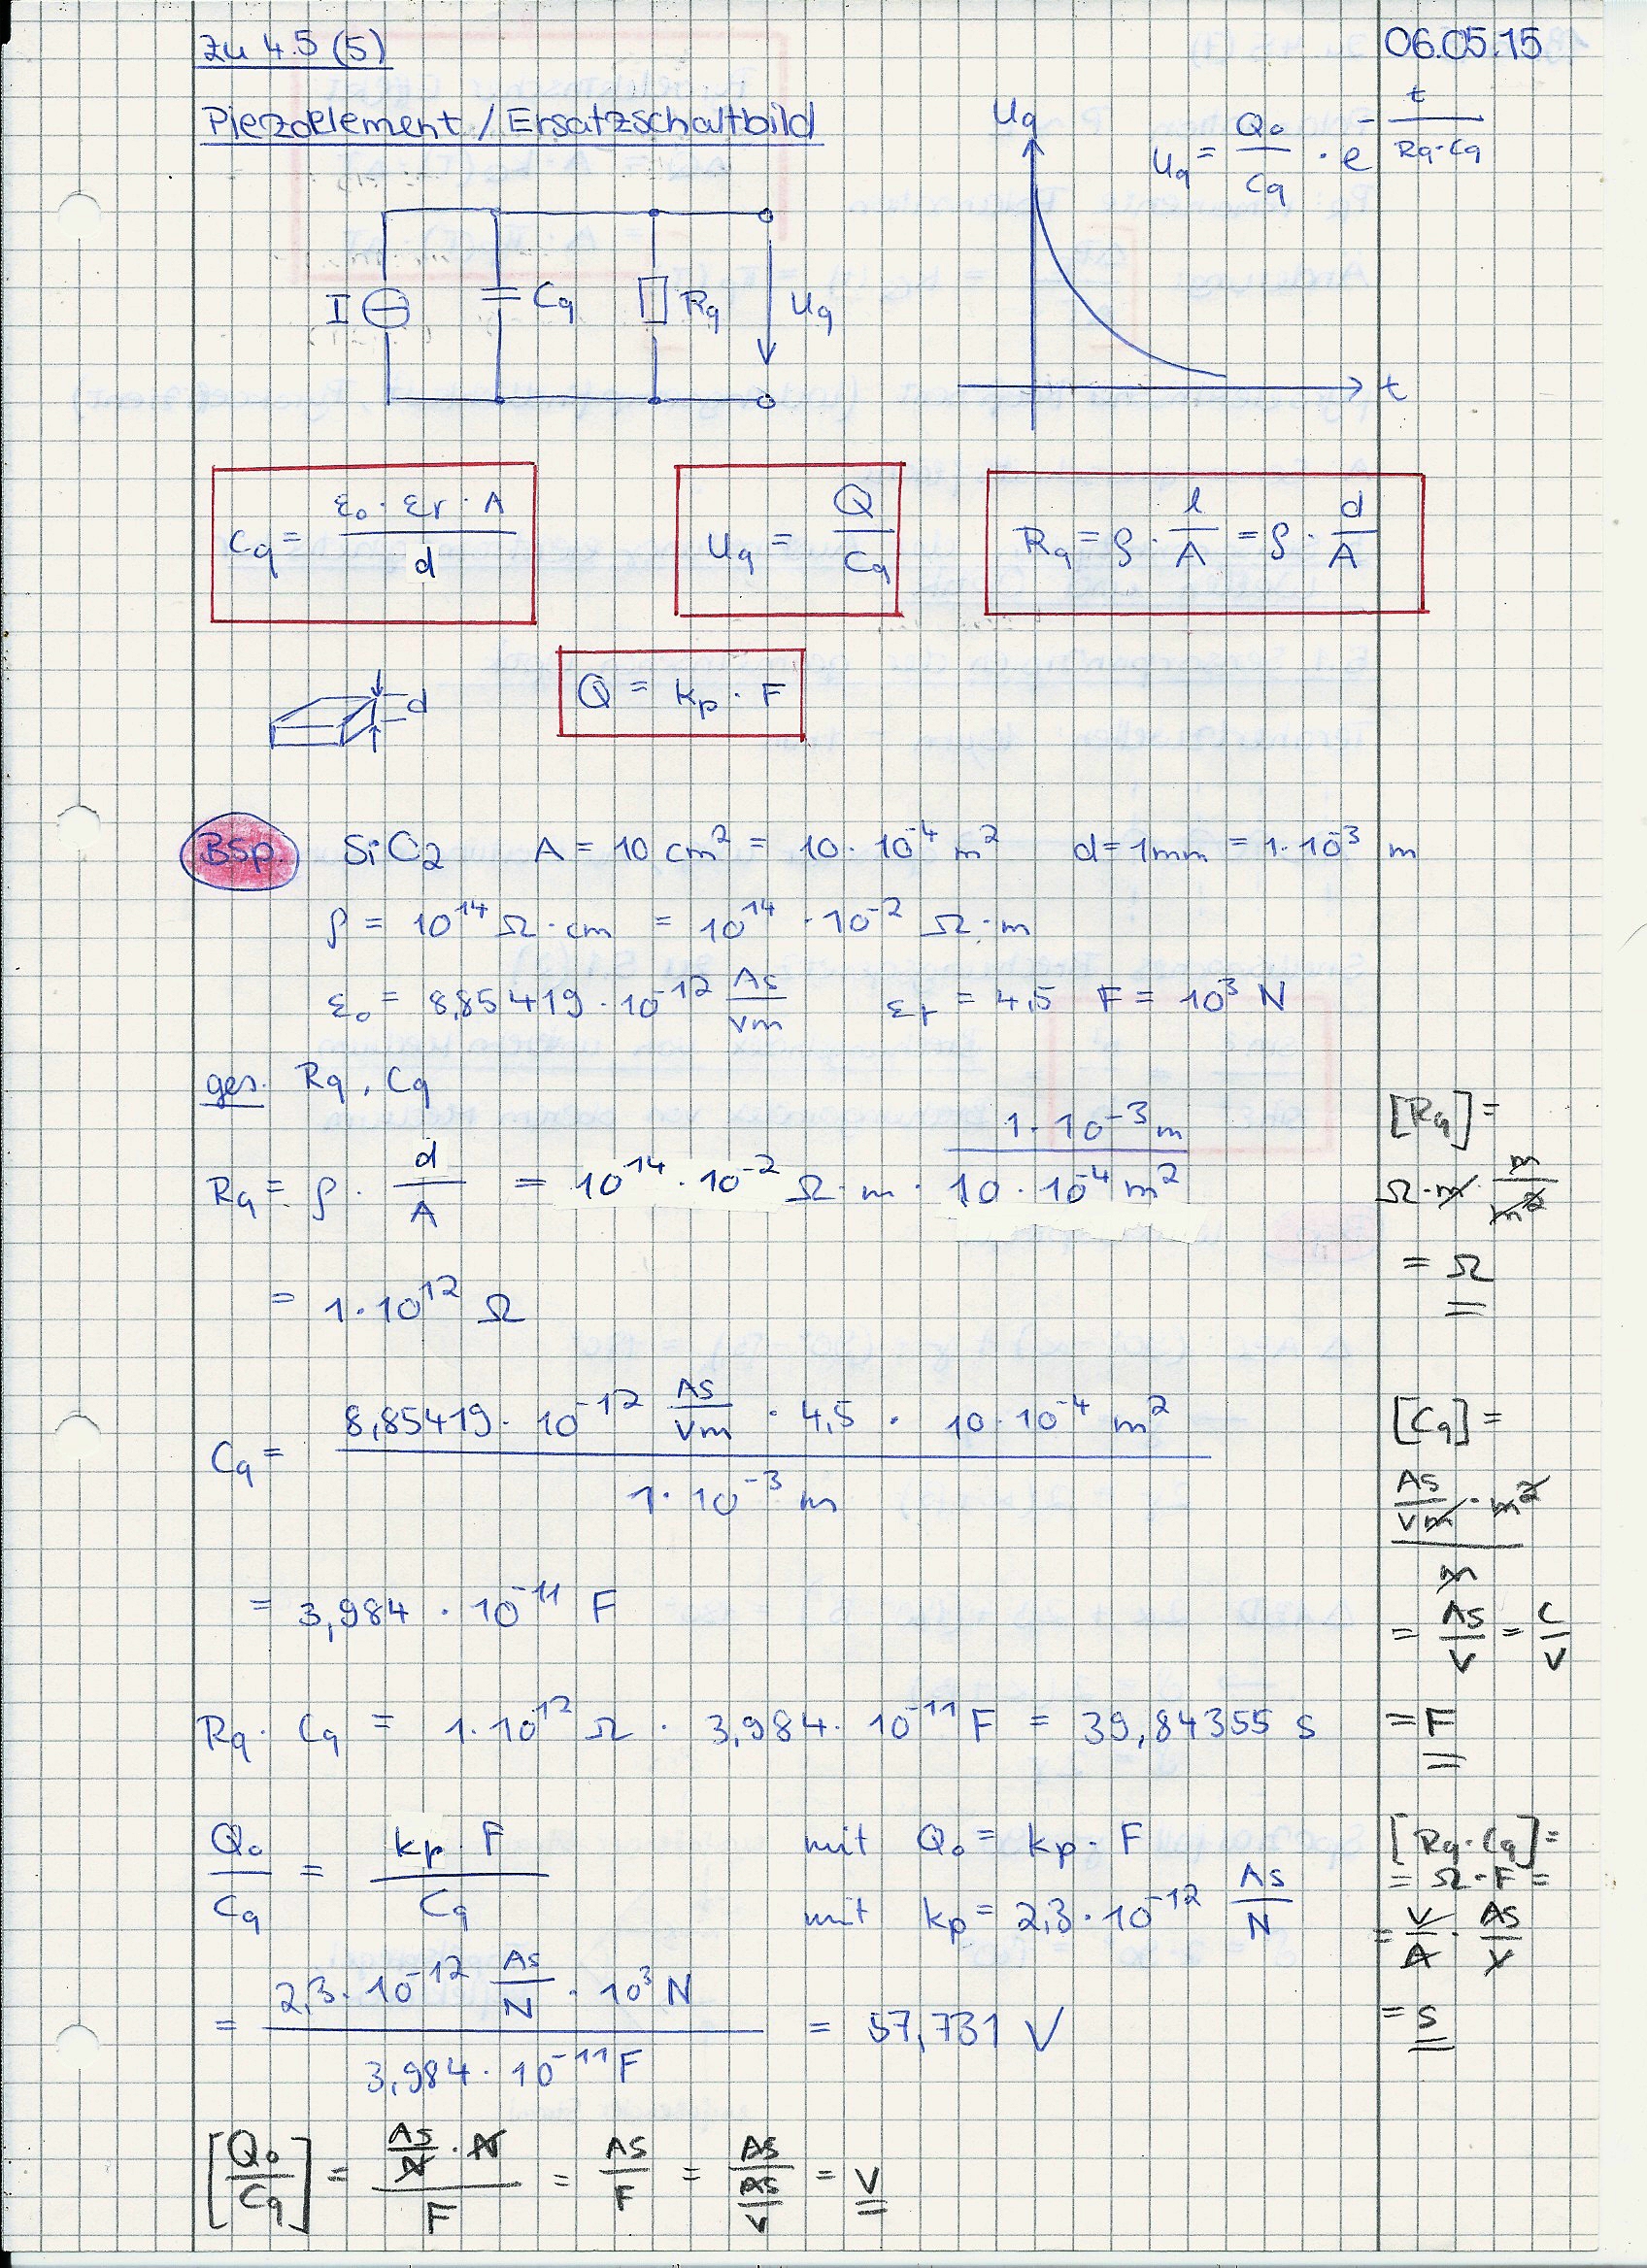 zu 4.5 (5)
06.05.15
Piezoelement / Ersatzschaltbild
I Cq Rq Uq
Uq
t
Uq = Q₀/Cq · e^(- t/(Rq·Cq))
Cq = (ε₀ · εr · A)/d
Uq = Q/Cq
Rq = ρ · l/A = ρ · d/A
d
Q = kp · F
Bsp. SiO2 A = 10 cm² = 10 · 10⁻⁴ m² d = 1mm = 1·10⁻³ m
ρ = 10¹⁴ Ω·cm = 10¹⁴ · 10⁻² Ω·m
ε₀ = 8,85419 · 10⁻¹² As/Vm εr = 4,5 F = 10³ N
ges. Rq, Cq
Rq = ρ · d/A = 10¹⁴ · 10⁻² Ω·m · (1·10⁻³ m)/(10 · 10⁻⁴ m²)
= 1·10¹² Ω
[Rq] =
Ω·m · m/m²
= Ω
Cq = (8,85419 · 10⁻¹² As/Vm · 4,5 · 10·10⁻⁴ m²)/(1·10⁻³ m)
= 3,984 · 10⁻¹¹ F
[Cq] =
(As/Vm · m²)/m
= As/V = C/V
= F
Rq · Cq = 1·10¹² Ω · 3,984 · 10⁻¹¹ F = 39,84355 s
Q₀/Cq = (kp · F)/Cq
mit Q₀ = kp · F
mit kp = 2,3 · 10⁻¹² As/N
[Rq·Cq] =
= Ω·F =
= V/A · As/V
= s
= (2,3 · 10⁻¹² As/N · 10³ N)/(3,984 · 10⁻¹¹ F) = 57,731 V
[Q₀/Cq] = (As/N · N)/F = As/F = As/(As/V) = V